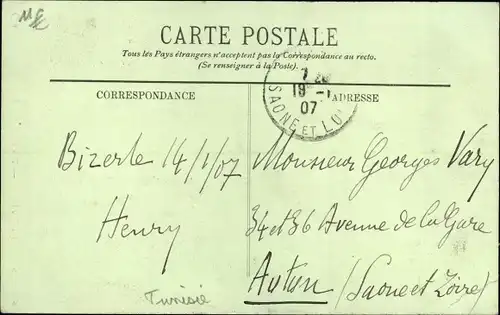 CARTE POSTALE
Tous les Pays étrangers n'acceptent pas la Correspondance au recto.
(Se renseigner à la Poste).
CORRESPONDANCE
ADRESSE
19 -1
07
SAONE ET LO
Bizerte 14/1/07
Henry
Monsieur Georges Vary
34 et 36 Avenue de la Gare
Autun (Saone et Loire)
Tunisie